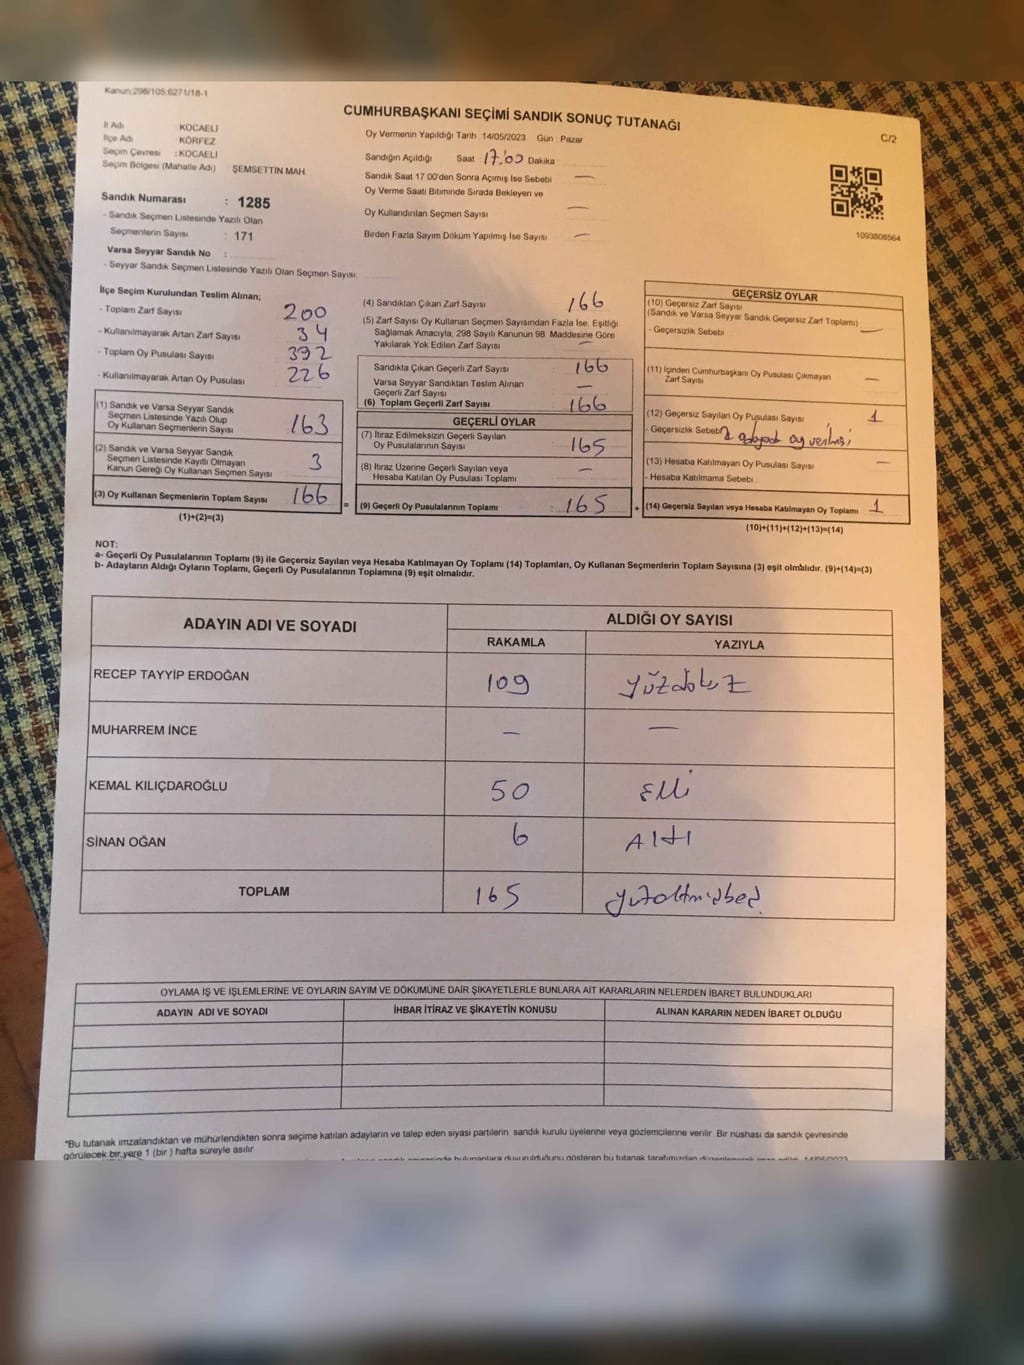 Kanun:298/105,6271/18-1
CUMHURBAŞKANI SEÇİMİ SANDIK SONUÇ TUTANAĞI
C/2
İl Adı : KOCAELİ
İlçe Adı : KÖRFEZ
Seçim Çevresi : KOCAELİ
Seçim Bölgesi (Mahalle Adı) ŞEMSETTİN MAH.
Oy Vermenin Yapıldığı Tarih 14/05/2023 Gün : Pazar
Sandığın Açıldığı Saat 17:00 Dakika
Sandık Saat 17.00'den Sonra Açımış İse Sebebi —
Oy Verme Saati Bitiminde Sırada Bekleyen ve
Oy Kullandırılan Seçmen Sayısı —
Birden Fazla Sayım Döküm Yapılmış İse Sayısı —
1093808564
Sandık Numarası : 1285
- Sandık Seçmen Listesinde Yazılı Olan
Seçmenlerin Sayısı : 171
Varsa Seyyar Sandık No :
- Seyyar Sandık Seçmen Listesinde Yazılı Olan Seçmen Sayısı
İlçe Seçim Kurulundan Teslim Alınan;
- Toplam Zarf Sayısı 200
- Kullanılmayarak Artan Zarf Sayısı 34
- Toplam Oy Pusulası Sayısı 392
- Kullanılmayarak Artan Oy Pusulası 226
(1) Sandık ve Varsa Seyyar Sandık
Seçmen Listesinde Yazılı Olup
Oy Kullanan Seçmenlerin Sayısı 163
(2) Sandık ve Varsa Seyyar Sandık
Seçmen Listesinde Kayıtlı Olmayan
Kanun Gereği Oy Kullanan Seçmen Sayısı 3
(3) Oy Kullanan Seçmenlerin Toplam Sayısı 166 =
(1)+(2)=(3)
(4) Sandıktan Çıkan Zarf Sayısı 166
(5) Zarf Sayısı Oy Kullanan Seçmen Sayısından Fazla İse, Eşitliği
Sağlamak Amacıyla, 298 Sayılı Kanunun 98. Maddesine Göre
Yakılarak Yok Edilen Zarf Sayısı —
Sandıkta Çıkan Geçerli Zarf Sayısı 166
Varsa Seyyar Sandıktan Teslim Alınan
Geçerli Zarf Sayısı —
(6) Toplam Geçerli Zarf Sayısı 166
GEÇERLİ OYLAR
(7) İtiraz Edilmeksizin Geçerli Sayılan
Oy Pusulalarının Sayısı 165
(8) İtiraz Üzerine Geçerli Sayılan veya
Hesaba Katılan Oy Pusulası Toplamı —
(9) Geçerli Oy Pusulalarının Toplamı : 165 +
GEÇERSİZ OYLAR
(10) Geçersiz Zarf Sayısı
(Sandık ve Varsa Seyyar Sandık Geçersiz Zarf Toplamı) —
- Geçersizlik Sebebi
(11) İçinden Cumhurbaşkanı Oy Pusulası Çıkmayan
Zarf Sayısı —
(12) Geçersiz Sayılan Oy Pusulası Sayısı 1
- Geçersizlik Sebebi 2 adayda oy verilmiş
(13) Hesaba Katılmayan Oy Pusulası Sayısı —
- Hesaba Katılmama Sebebi
(14) Geçersiz Sayılan veya Hesaba Katılmayan Oy Toplamı 1
(10)+(11)+(12)+(13)=(14)
NOT:
a- Geçerli Oy Pusulalarının Toplamı (9) ile Geçersiz Sayılan veya Hesaba Katılmayan Oy Toplamı (14) Toplamları, Oy Kullanan Seçmenlerin Toplam Sayısına (3) eşit olmalıdır. (9)+(14)=(3)
b- Adayların Aldığı Oyların Toplamı, Geçerli Oy Pusulalarının Toplamına (9) eşit olmalıdır.
ADAYIN ADI VE SOYADI ALDIĞI OY SAYISI
RAKAMLA YAZIYLA
RECEP TAYYİP ERDOĞAN 109 yüzdokuz
MUHARREM İNCE — —
KEMAL KILIÇDAROĞLU 50 Elli
SİNAN OĞAN 6 Altı
TOPLAM 165 yüzaltmışbeş
OYLAMA İŞ VE İŞLEMLERİNE VE OYLARIN SAYIM VE DÖKÜMÜNE DAİR ŞİKAYETLERLE BUNLARA AİT KARARLARIN NELERDEN İBARET BULUNDUKLARI
ADAYIN ADI VE SOYADI İHBAR İTİRAZ VE ŞİKAYETİN KONUSU ALINAN KARARIN NEDEN İBARET OLDUĞU
*Bu tutanak imzalandıktan ve mühürlendikten sonra seçime katılan adayların ve talep eden siyasi partilerin sandık kurulu üyelerine veya gözlemcilerine verilir. Bir nüshası da sandık çevresinde
görülecek bir yere 1 (bir ) hafta süreyle asılır